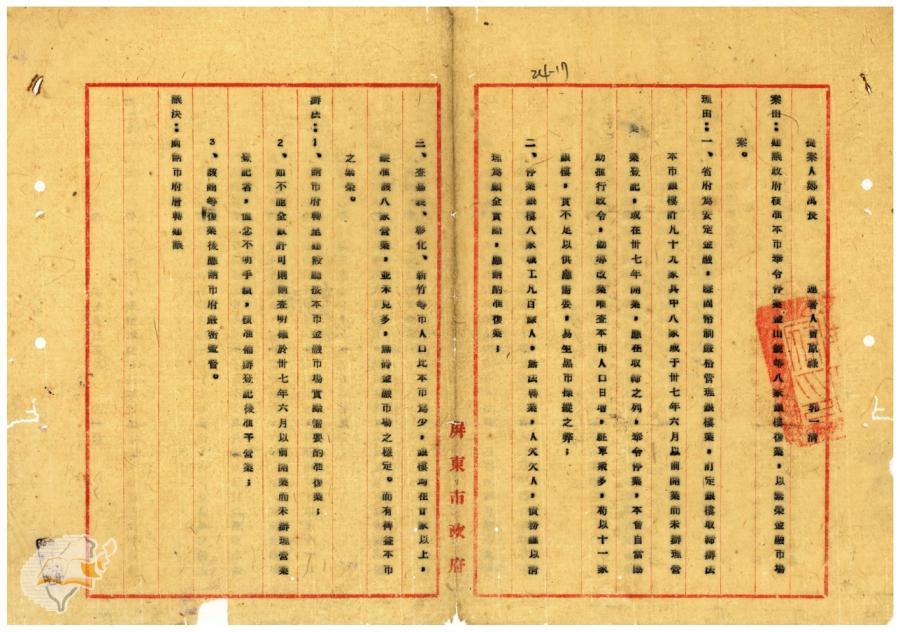 24-17
提案人鄭萬長　連署人曾原祿　郭一清
案由：建議政府核准本市奉令停業金山銀等八家銀樓復業，以繁榮金融市場
案。
理由：一、省府為安定金融，鞏固幣制嚴格管理銀樓業，訂定銀樓取締辦法
本市銀樓計九十九家其中八家或于卅七年六月以前開業而未辦理營
業登記，或在卅七年開業，應在取締之列，奉令停業，本會自當協
助推行政令，勸導改業唯查本市人口日增，駐軍衆多，苟以十一家
銀樓，實不足以供應需要，易生黑市操縱之弊；
二、停業銀樓八家職工九百餘人，無法轉業，人欠欠人，債務難以清
理為顧全實際，應請酌准復業；
三、查嘉義、彰化、新竹等市人口比本市為少，銀樓均在百家以上，
縱准該八家營業，並未見多，無碍金融市場之穩定。而有裨益本市
之繁榮。
辦法：1、請市府轉呈建設廳按本市金融市場實際需要酌准復業；
2、如不能全數許可則請查明確於卅七年六月以前開業而未辦理營業
登記者，姑念不明手續，核准補辦登記後准予營業；
3、該商等復業後應請市府嚴密查督。
議決：函請市府層轉建議
屏東市政府